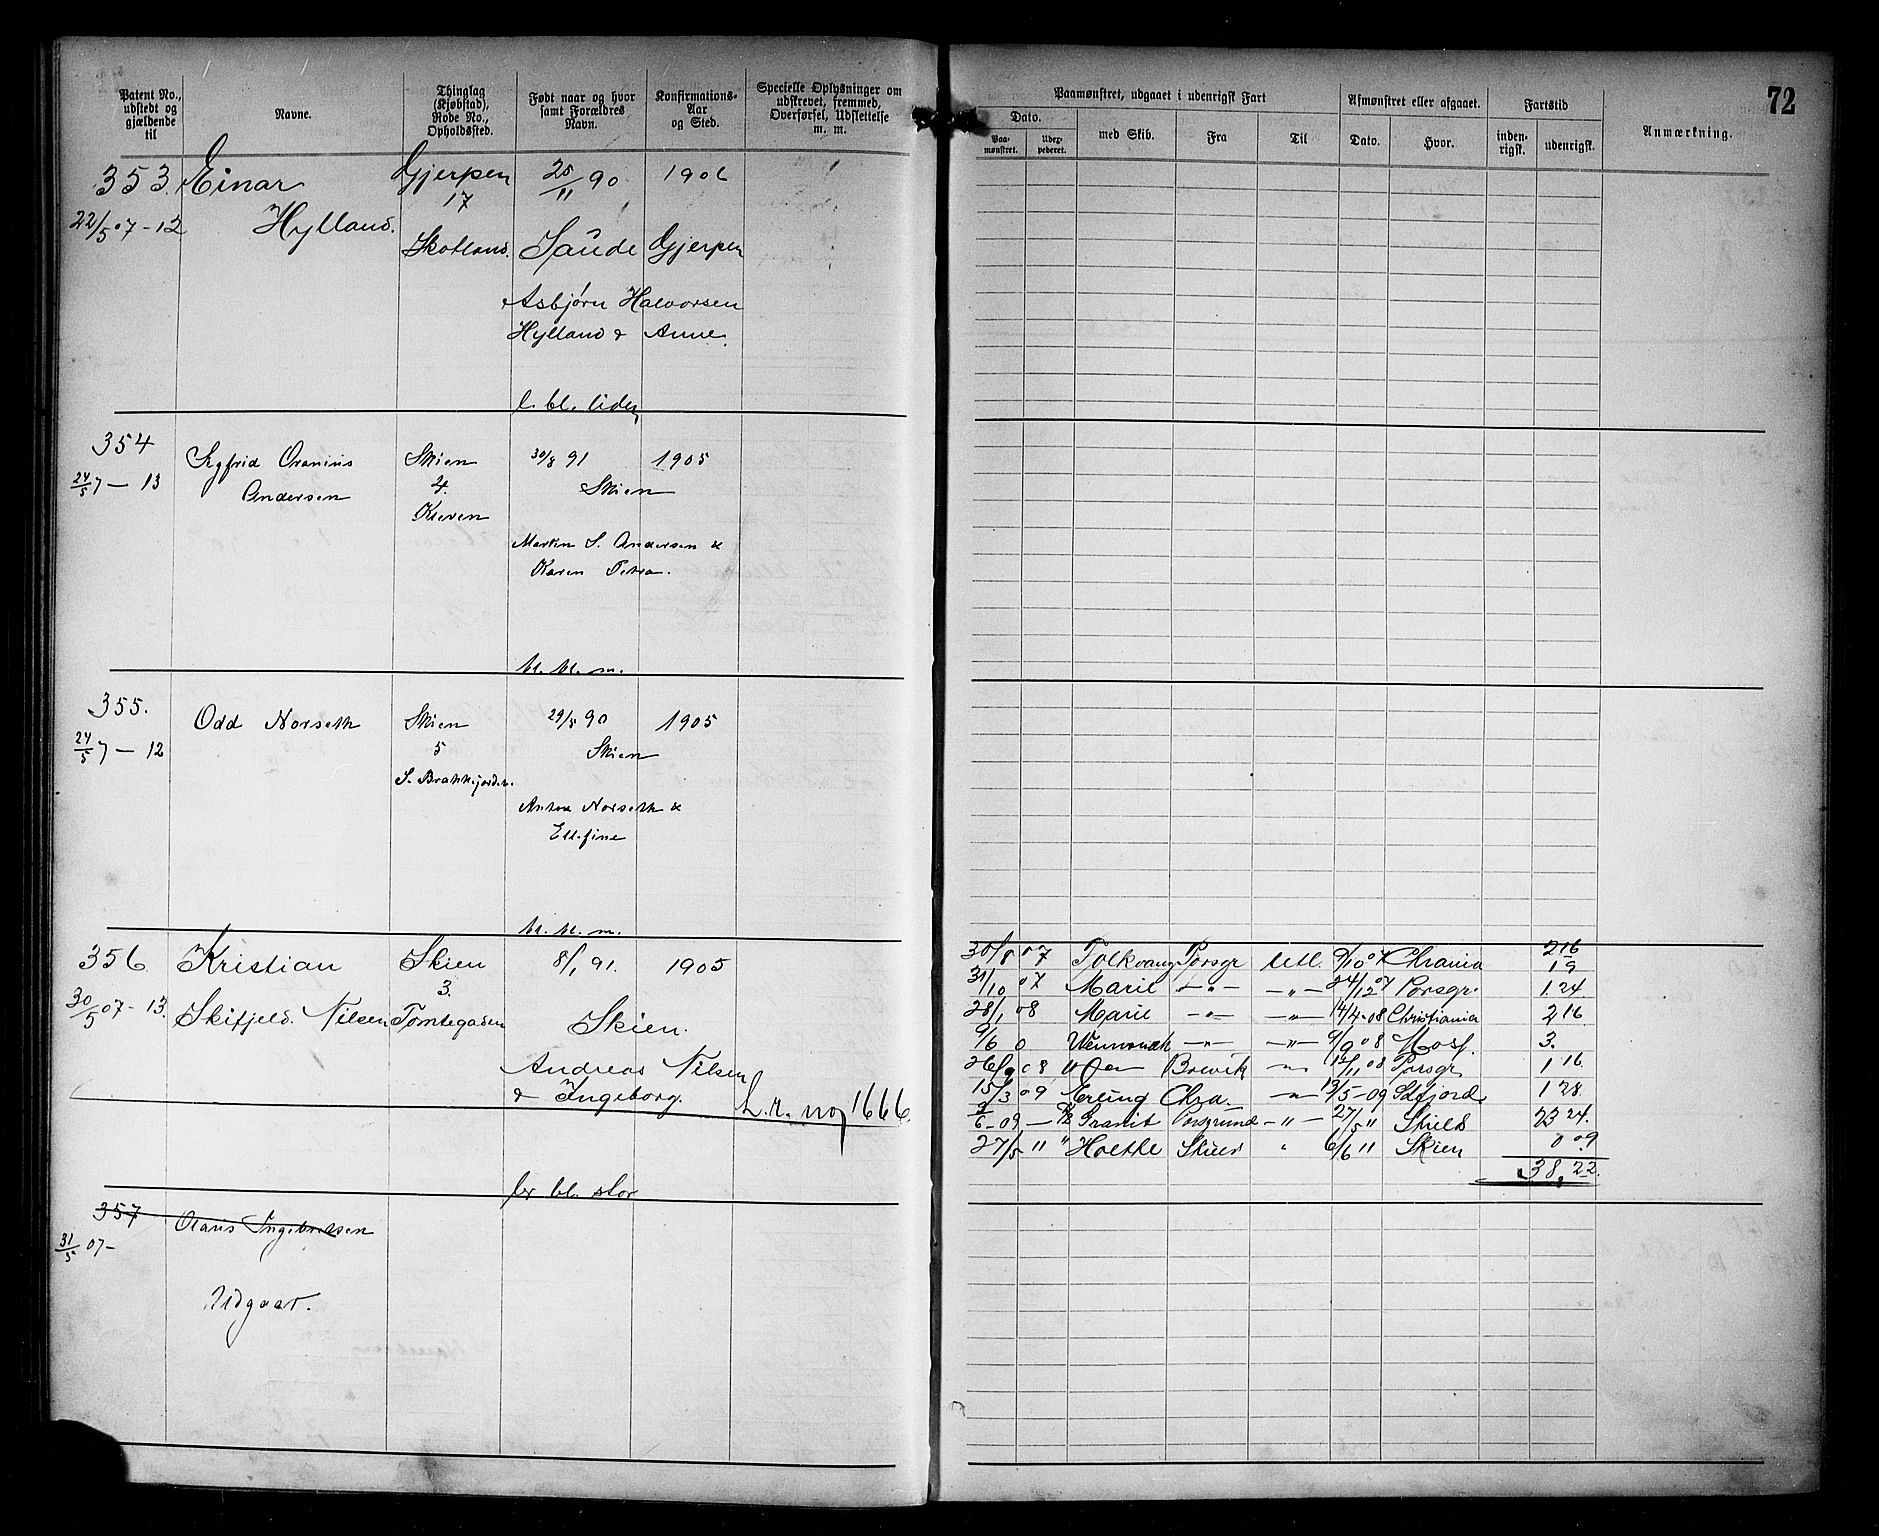 72
Patent No., udstedt og gjældende til
Navne.
Thinglag (Kjøbstad), Rode No., Opholdssted.
Født naar og hvor samt Forældres Navn.
Konfirmations-Aar og Sted.
Specielle Oplysninger om udskrevet, fremmed, Overførsel, Udslettelse m. m.
Paamønstret, udgaaet i udenrigsk Fart
Afmønstret eller afgaaet.
Fartstid
Anmærkning.
Dato.
Paa-mønstret.
Udex-pederet.
med Skib.
Fra
Til
Dato.
Hvor.
inden-rigsk.
udenrigsk.
353. Einar Gjerpen 25/11 90 1906
17
22/5 07-12 Hylland. Skotland. Saude Gjerpen
Asbjørn Halvorsen
Hylland & Anne.
l. bl. liden
354 Sigfrid Oranius Skien 30/8 91 1905
24/5 7 - 13 Andersen 4. Skien
Kleven
Martin S. Andersen &
Karen Petra.
bl. bl. m.
355. Odd Norseth Skien 29/5 90 1905
24/5 7 - 12 5 Skien
S. Brækkejordet.
Anton Norseth &
Ellefine
bl. bl. m.
356 Kristian Skien 8/1 91. 1905
3.
30/5 07-13. Skifjeld. Nilsen Tomtegaden Skien.
Andreas Nilsen
& Ingeborg. h.r. no 1666
br bl. stor
30/8 07 Folkvang Porsgr Utl. 9/10 07 Chrania 2 16
1 9
31/10 07 Marie -"- -"- 24/12 07 Porsgr. 1. 24.
28/1 08 Marie -"- -"- 14/4-08 Christiania 2 16
9/6 0 -"- -"- 9/9 08 Mosj. 3.
26/9 08 Brevik -"- 12/11 08 Porsgr 1 16
15/3 09 Erling Chra. -"- 13/5-09 Sdfjord 1 28.
2/6-09 - Granit Porsgrund -"- 27/5 11 Skields 23 24.
27/5 11 " Holtke Skields " 6/6 11 Skien 0 09
38, 22.
357 Olaus Ingebretsen
31/5 07-
Udgaar.